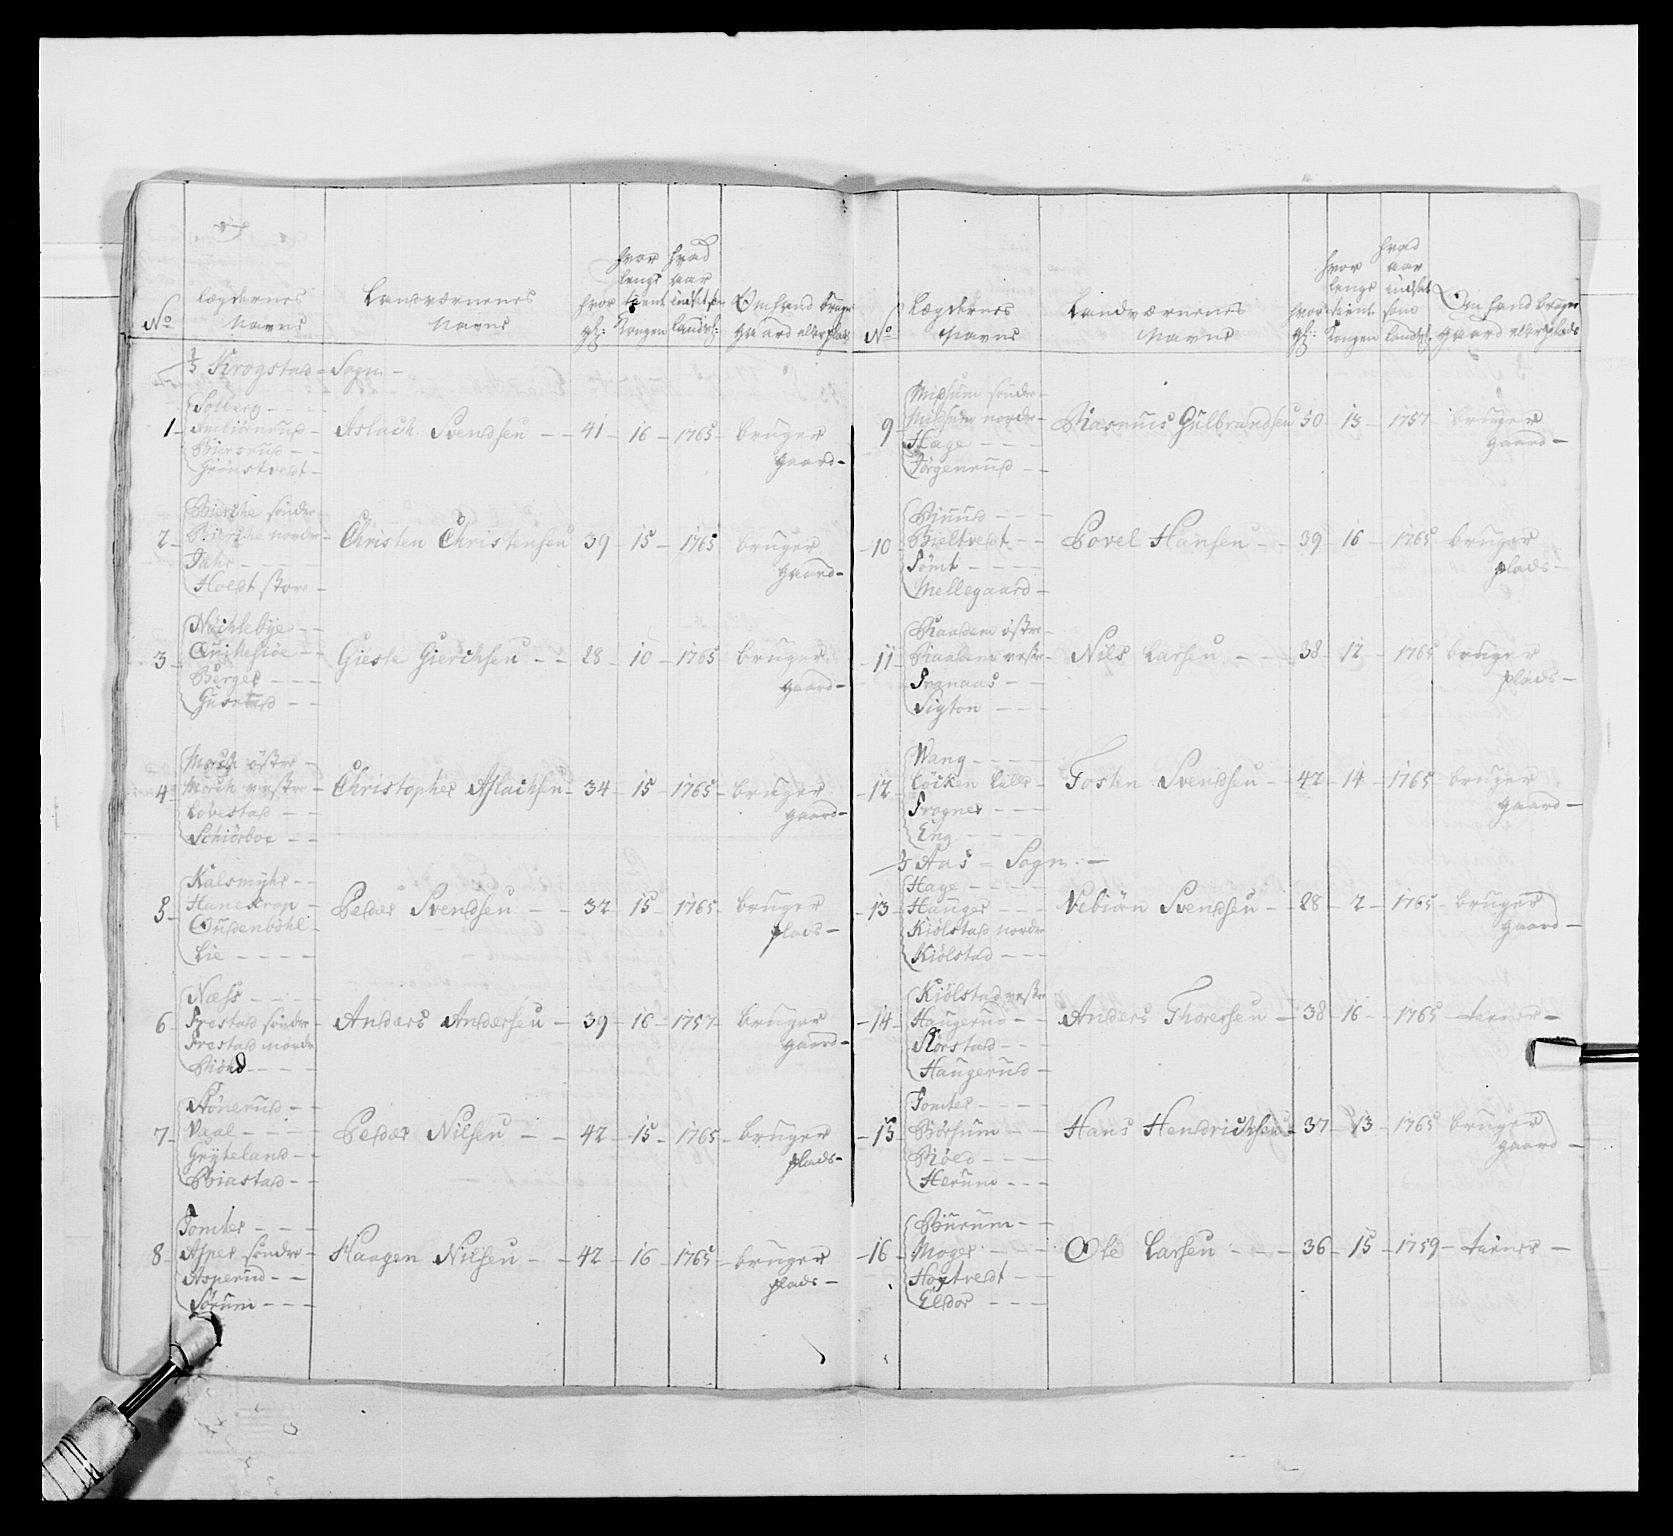 No
Lægdernes
Navne
Landværnenes
Navne
hvor
gl:
hvor
lenge
tient
Kongen
hvad
aar
indsat som
landv:
Om hand bruger
gaard eller plads
Krogstad - Sogn -
1 -
Solberg - - -
Ambiörnrud -
Biersrud - -
Grönstvedt -
Aslach Svendsen - - 41 - 16 - 1765 - bruger
gaard -
2 -
Bierche söndre -
Bierche nordre -
Dahr - - -
Holdt store -
Christen Christensen 39 - 15 - 1765 bruger
gaard -
3 -
Nachlebye - -
Qvikestöe - -
Berger - - -
Guserud - -
Gieste Gierchsen - - 28 - 10 - 1765 - bruger
gaard -
4 -
Morch östre -
Morch vestre -
Lövestad - -
Schiörboe - -
Christopher Aslachsen - 34 - 15 - 1765 - bruger
gaard -
5 -
Kalsmyhr - -
Hanekrop -
Oudenböhl -
Lie - - - -
Peder Svendsen - - 32 - 15 - 1765 - bruger
plads -
6 -
Næss - - - -
Frestad söndre -
Frestad nordre
Anders Andersen - 39 - 16 - 1757 - bruger
gaard -
7 -
Stönerud - -
Vaal - - - -
Gryteland - -
Biastad - -
Peder Nilsen - - 42 - 15 - 1765 - bruger
plads -
8
Tomter - - -
Asper söndre -
Asperud - -
Sörum - - -
Haagen Nilsen - - 42 - 16 - 1765 - bruger
plads -
No
Lægdernes
Navne
Landværnenes
Navne
hvor
gl:
hvor
lenge
tient
Kongen
hvad
aar
indsat
som
landv:
Om hand bruger
gaard eller plads
9 -
Midsum söndre -
Midsum nordre -
Hage - - -
Jörgenrud - -
Rasmus Gulbrandsen 50 - 13 - 1757 - bruger
gaard -
- 10 -
Rinnd - - -
Bieltvedt - -
Tömt - - - -
Mellegaard -
Povel Hansen - - 39 - 16 - 1765 - bruger
plads -
- 11 -
Kaadem östre -
Kaadem vestre -
Frgnaas - -
Sigton - - -
Nils Larsen - - 38 - 12 - 1765 bruger
plads -
- 12 -
Wang - - - -
Löcken lille -
Frogner - - -
Eng - - - -
Tosten Svendsen - 42 - 14 - 1765 bruger
gaard -
Aas - Sogn -
- 13 -
Hage - - - -
Hauger - - -
Kiölstad nordre
Kiölstad - - -
Vebiörn Svendsen - - 28 - 2 - 1765 - bruger
gaard -
- 14 -
Kiölstad vestre
Haugerud - -
Korstad - - -
Haugerud -
Anders Thorersen - 38 - 16 - 1765 - tiener -
- 15 -
Tomter - - - -
Börsum - - -
Röed - - - -
Herum - - -
Hans Hendrichsen - 37 - 13 - 1765 bruger
gaard -
- 16 -
Burum - -
Moger - - -
Hogtvedt - -
Eldor - - -
Ole Larsen - - - 36 - 15 - 1759 - tiener -